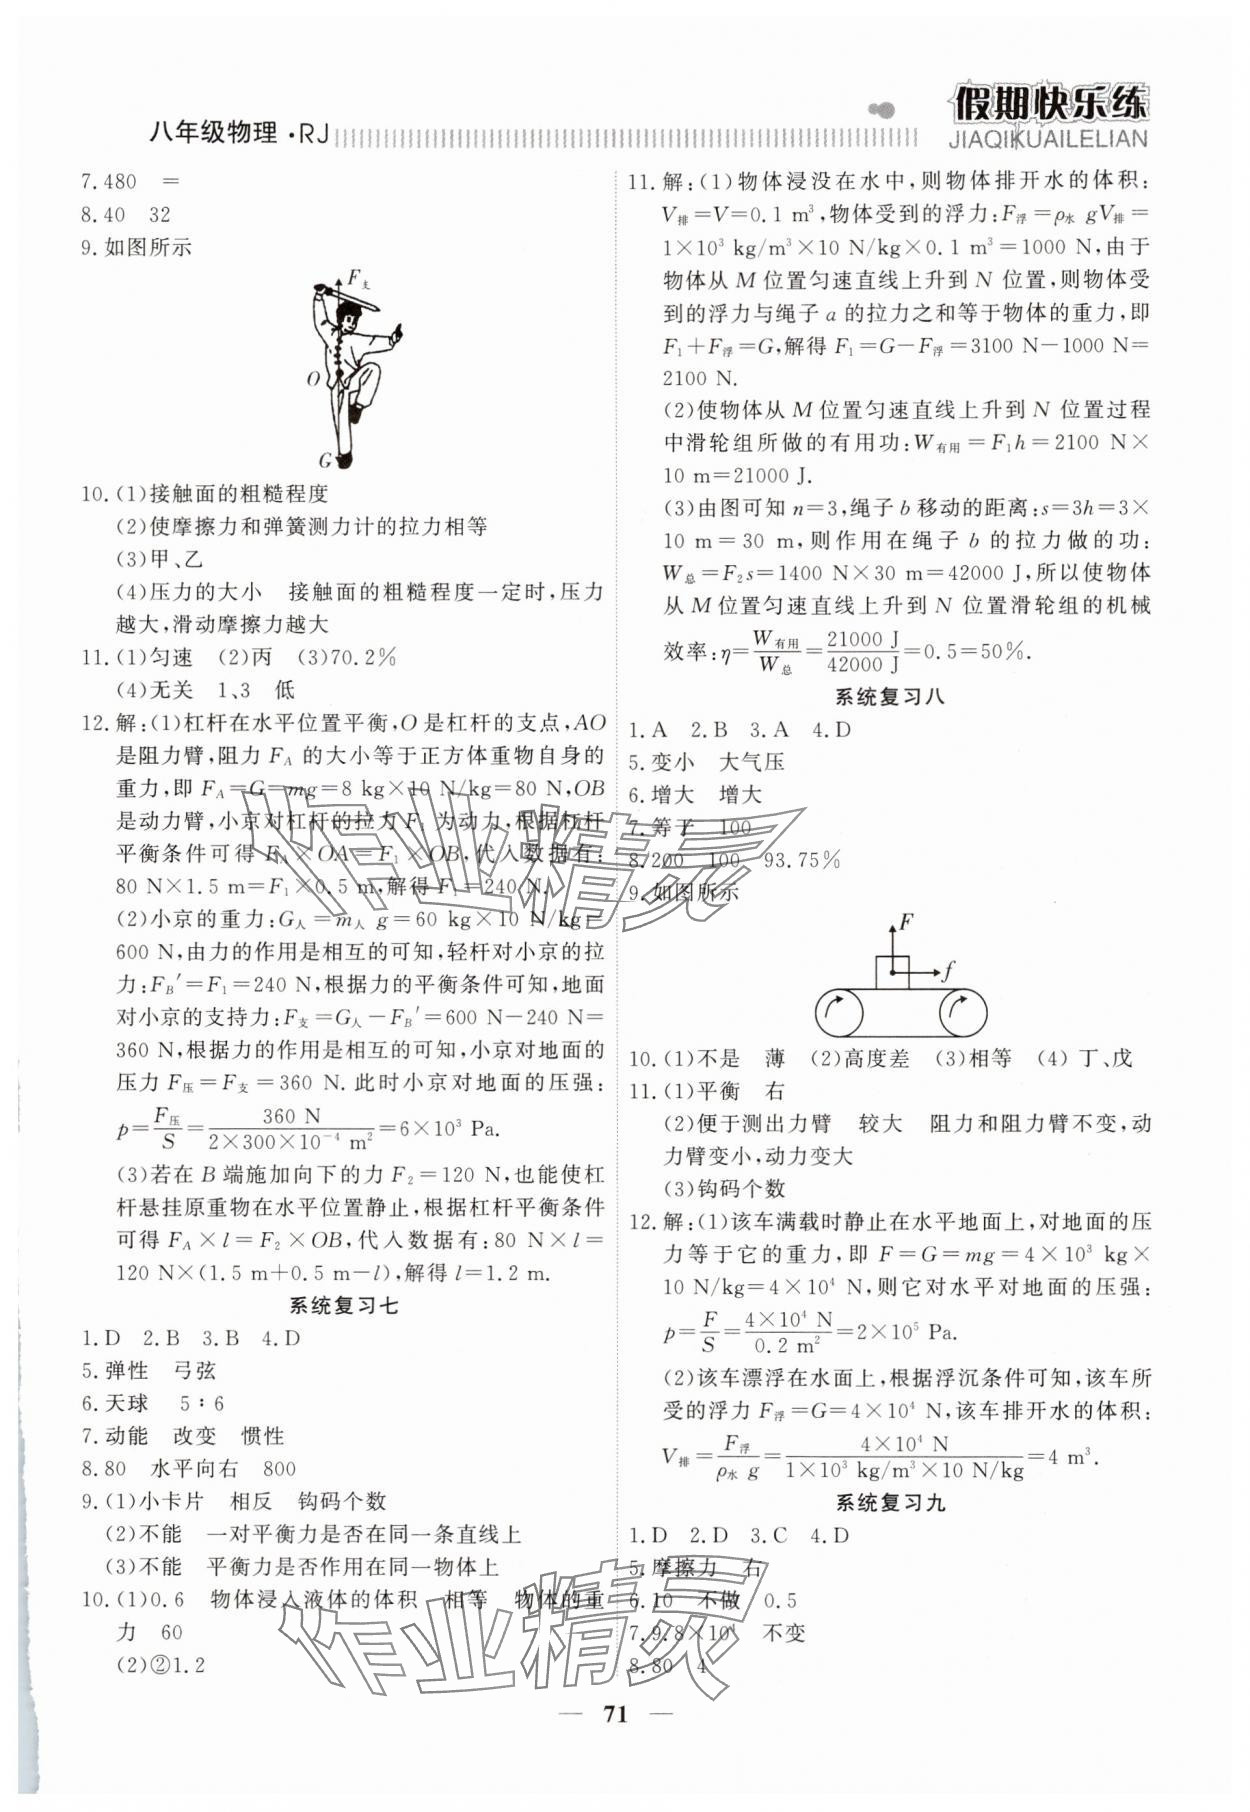 八年级物理·RJ
假期快乐练
JIAQIKUAILELIAN
7.480 =
8.40 32
9.如图所示
F支
O
G
10.(1)接触面的粗糙程度
(2)使摩擦力和弹簧测力计的拉力相等
(3)甲、乙
(4)压力的大小 接触面的粗糙程度一定时,压力
越大,滑动摩擦力越大
11.(1)匀速 (2)丙 (3)70.2%
(4)无关 1、3 低
12.解:(1)杠杆在水平位置平衡,O是杠杆的支点,AO
是阻力臂,阻力 F_A 的大小等于正方体重物自身的
重力,即 F_A=G=mg=8 kg×10 N/kg=80 N,OB
是动力臂,小京对杠杆的拉力 F₁ 为动力,根据杠杆
平衡条件可得 F_A×OA=F₁×OB,代入数据有:
80 N×1.5 m=F₁×0.5 m,解得 F₁=240 N.
(2)小京的重力:G人=m人 g=60 kg×10 N/kg=
600 N,由力的作用是相互的可知,轻杆对小京的拉
力:F_B′=F₁=240 N,根据力的平衡条件可知,地面
对小京的支持力:F支=G人-F_B′=600 N-240 N=
360 N,根据力的作用是相互的可知,小京对地面的
压力 F压=F支=360 N.此时小京对地面的压强:
p=F压/S=360 N/(2×300×10⁻⁴ m²)=6×10³ Pa.
(3)若在 B 端施加向下的力 F₂=120 N,也能使杠
杆悬挂原重物在水平位置静止,根据杠杆平衡条件
可得 F_A×l=F₂×OB,代入数据有:80 N×l=
120 N×(1.5 m+0.5 m-l),解得 l=1.2 m.
系统复习七
1.D 2.B 3.B 4.D
5.弹性 弓弦
6.天球 5∶6
7.动能 改变 惯性
8.80 水平向右 800
9.(1)小卡片 相反 钩码个数
(2)不能 一对平衡力是否在同一条直线上
(3)不能 平衡力是否作用在同一物体上
10.(1)0.6 物体浸入液体的体积 相等 物体的重
力 60
(2)②1.2
11.解:(1)物体浸没在水中,则物体排开水的体积:
V排=V=0.1 m³,物体受到的浮力:F浮=ρ水 gV排=
1×10³ kg/m³×10 N/kg×0.1 m³=1000 N,由于
物体从 M 位置匀速直线上升到 N 位置,则物体受
到的浮力与绳子 a 的拉力之和等于物体的重力,即
F₁+F浮=G,解得 F₁=G-F浮=3100 N-1000 N=
2100 N.
(2)使物体从 M 位置匀速直线上升到 N 位置过程
中滑轮组所做的有用功:W有用=F₁h=2100 N×
10 m=21000 J.
(3)由图可知 n=3,绳子 b 移动的距离:s=3h=3×
10 m=30 m,则作用在绳子 b 的拉力做的功:
W总=F₂s=1400 N×30 m=42000 J,所以使物体
从 M 位置匀速直线上升到 N 位置滑轮组的机械
效率:η=W有用/W总=21000 J/42000 J=0.5=50%.
系统复习八
1.A 2.B 3.A 4.D
5.变小 大气压
6.增大 增大
7.等于 100
8.200 100 93.75%
9.如图所示
F
f
10.(1)不是 薄 (2)高度差 (3)相等 (4)丁、戊
11.(1)平衡 右
(2)便于测出力臂 较大 阻力和阻力臂不变,动
力臂变小,动力变大
(3)钩码个数
12.解:(1)该车满载时静止在水平地面上,对地面的压
力等于它的重力,即 F=G=mg=4×10³ kg×
10 N/kg=4×10⁴ N,则它对水平对地面的压强:
p=F/S=4×10⁴ N/0.2 m²=2×10⁵ Pa.
(2)该车漂浮在水面上,根据浮沉条件可知,该车所
受的浮力 F浮=G=4×10⁴ N,该车排开水的体积:
V排=F浮/(ρ水 g)=4×10⁴ N/(1×10³ kg/m³×10 N/kg)=4 m³.
系统复习九
1.D 2.D 3.C 4.D
5.摩擦力 右
6.10 不做 0.5
7.9.8×10⁴ 不变
8.80 4
作业精灵
作业精灵
71